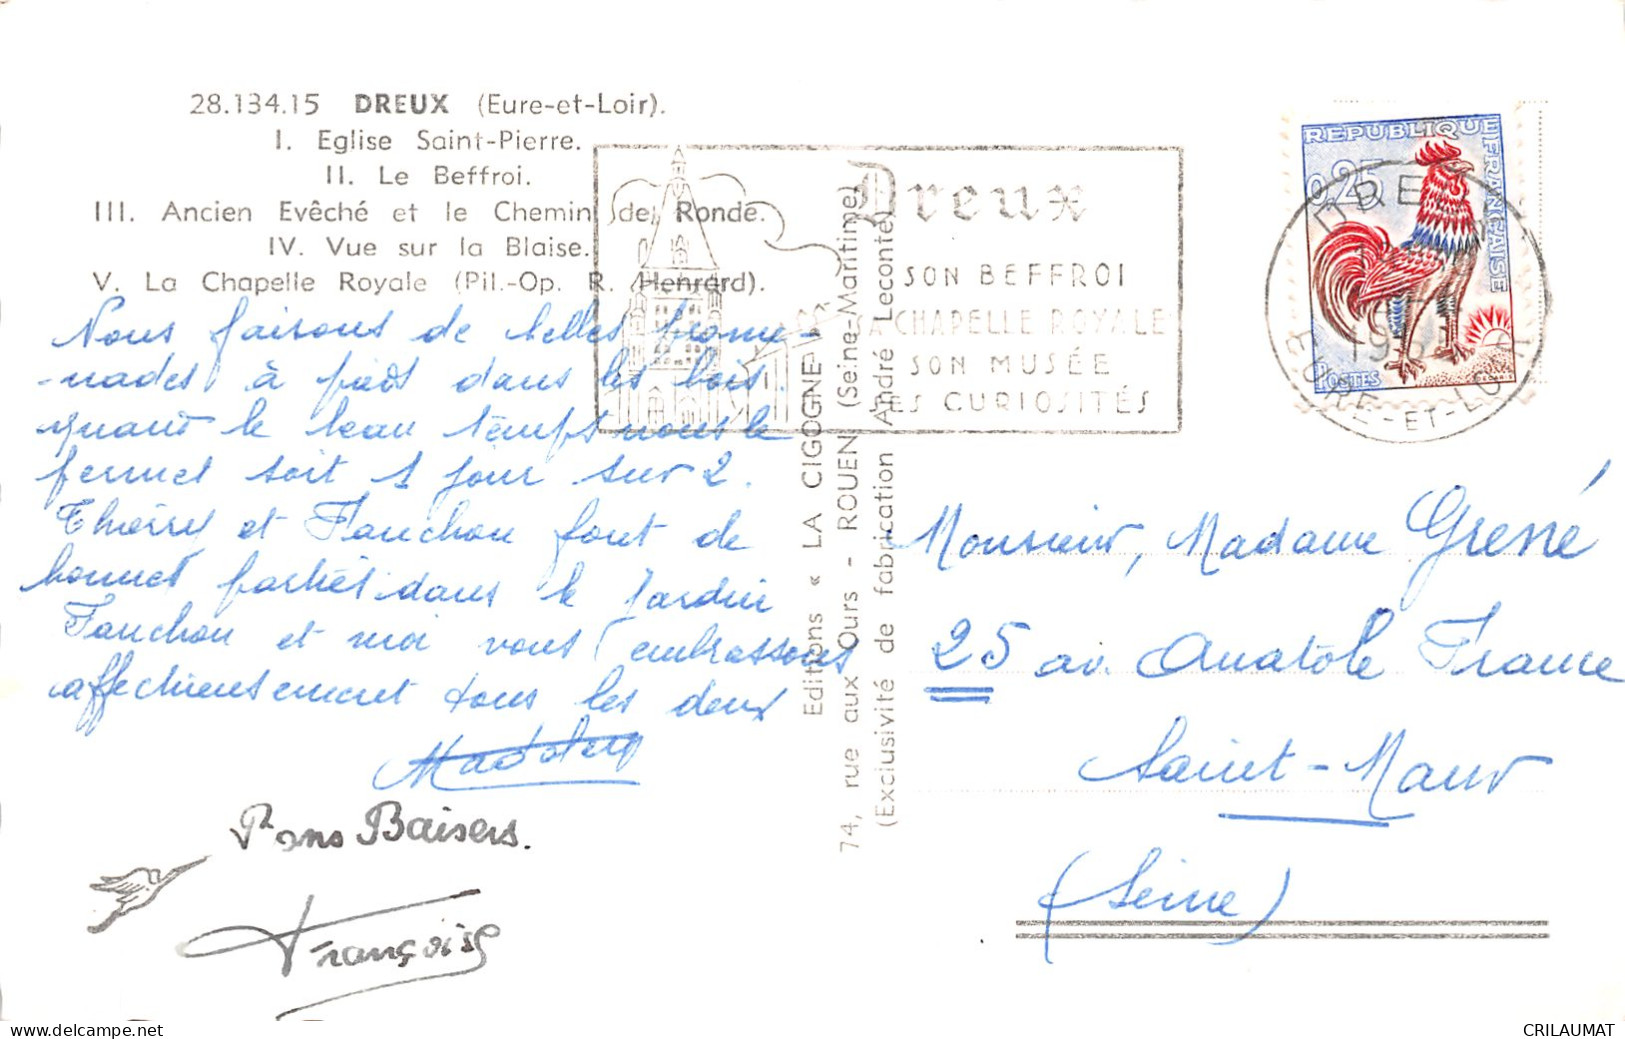 28.134.15 DREUX (Eure-et-Loir).
I. Eglise Saint-Pierre.
II. Le Beffroi.
III. Ancien Evêché et le Chemin de Ronde.
IV. Vue sur la Blaise.
V. La Chapelle Royale (Pil.-Op. R. Henrard).
Nous faisons de belles prome-
-nades à pied dans les bois.
quand le beau temps nous le
permet soit 1 jour sur 2.
Thierry et Fanchon font de
bonnes parties dans le jardin
Fanchon et moi vous embrassons
affectueusement tous les deux
Bons Baisers.
Françoise
Editions « LA CIGOGNE »
74, rue aux Ours - ROUEN (Seine-Maritime)
(Exclusivité de fabrication André Leconte)
Dreux
SON BEFFROI
SA CHAPELLE ROYALE
SON MUSÉE
SES CURIOSITÉS
REPUBLIQUE FRANÇAISE
0,25
POSTES
DREUX
EURE-ET-LOIR
Monsieur, Madame
25 av. Anatole France
Saint-Maur
(Seine)
www.delcampe.net
CRILAUMAT